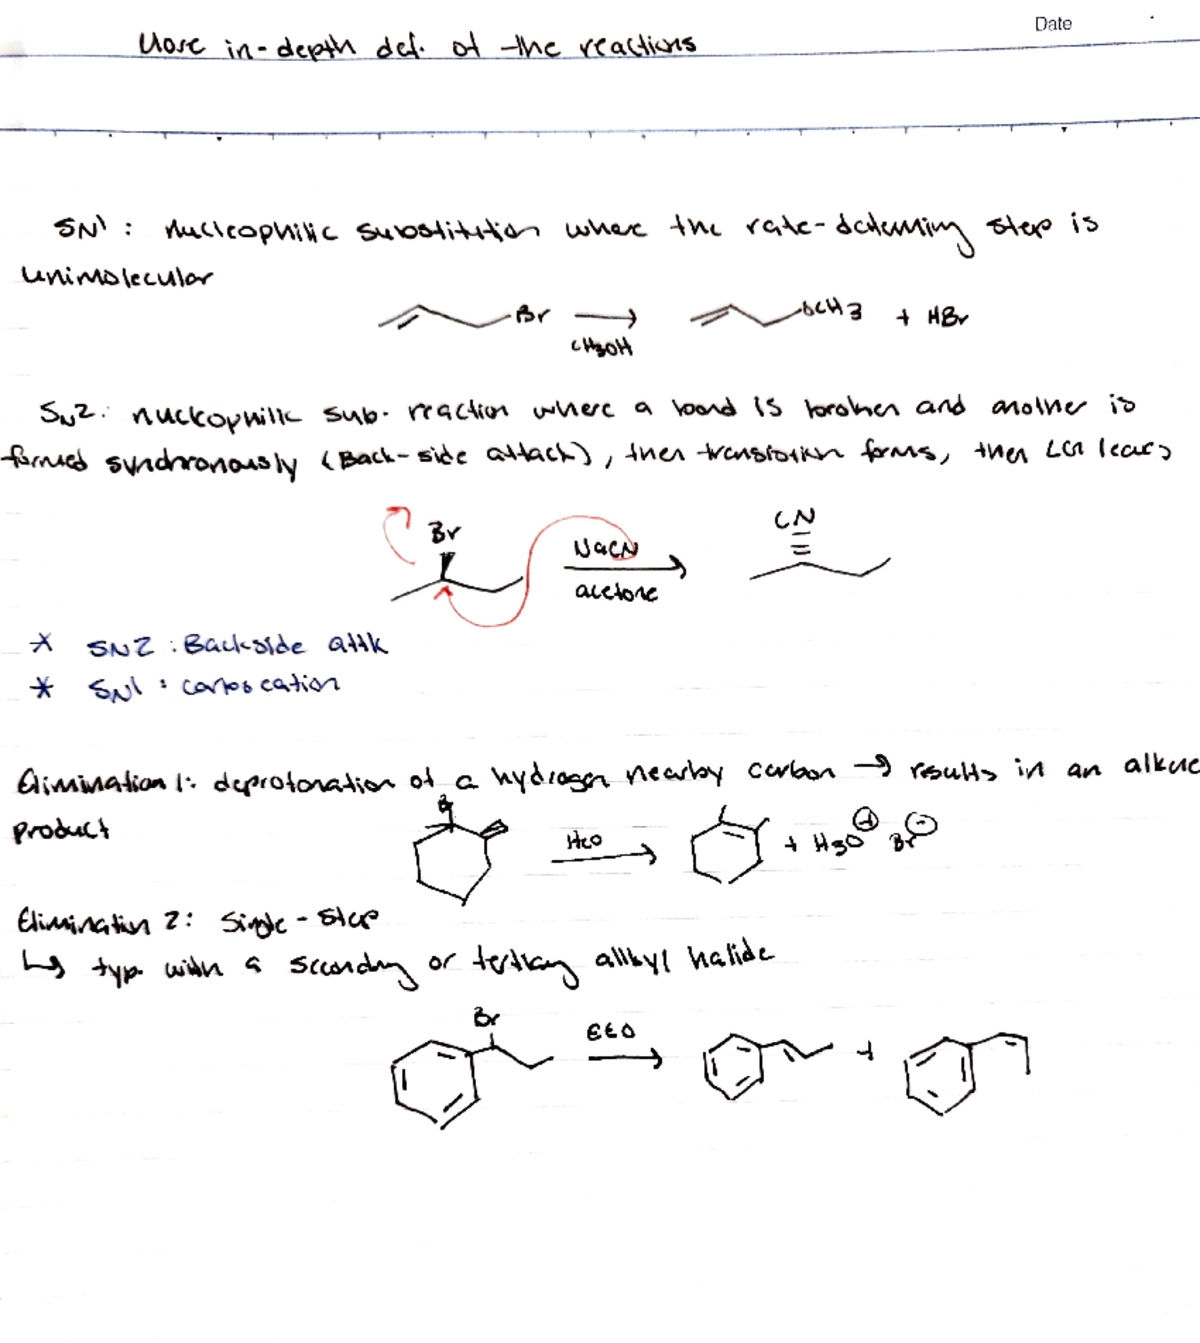 Date
More in-depth def. of the reactions
SN1 : nucleophilic substitution where the rate-determing step is
unimolecular
Br
OCH3 + HBr
CH3OH
SN2: nucleophilic sub. reaction where a bond is broken and another is
formed synchronously (Back-side attack), then transistion forms, then LG leaves
Br
NaCN
acetone
CN
* SN2 : Backside attk
* SN1 : carbocation
Elimination 1: deprotonation of a hydrogen nearby carbon → results in an alkene
product
Br
H2O
+ H3O⊕ Br⊖
Elimination 2: Single-step
↳ typ. with a secondary or tertiary alkyl halide
Br
EtO
+